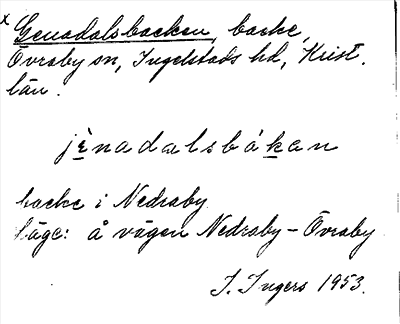 x Genadalsbacken, backe,
Övraby sn, Ingelstads hd, Krist.
län.
jènadalsbákan
backe i Nedraby
läge: å vägen Nedraby - Övraby
I. Ingers 1953.